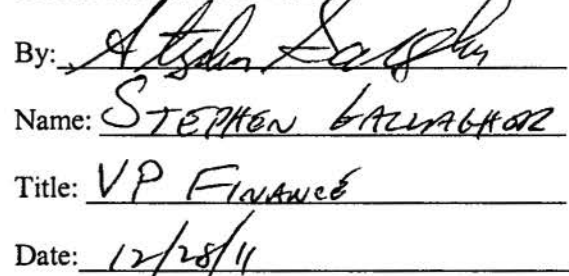 By: Stephen Gallagher
Name: STEPHEN GALLAGHER
Title: VP FINANCE
Date: 12/28/11